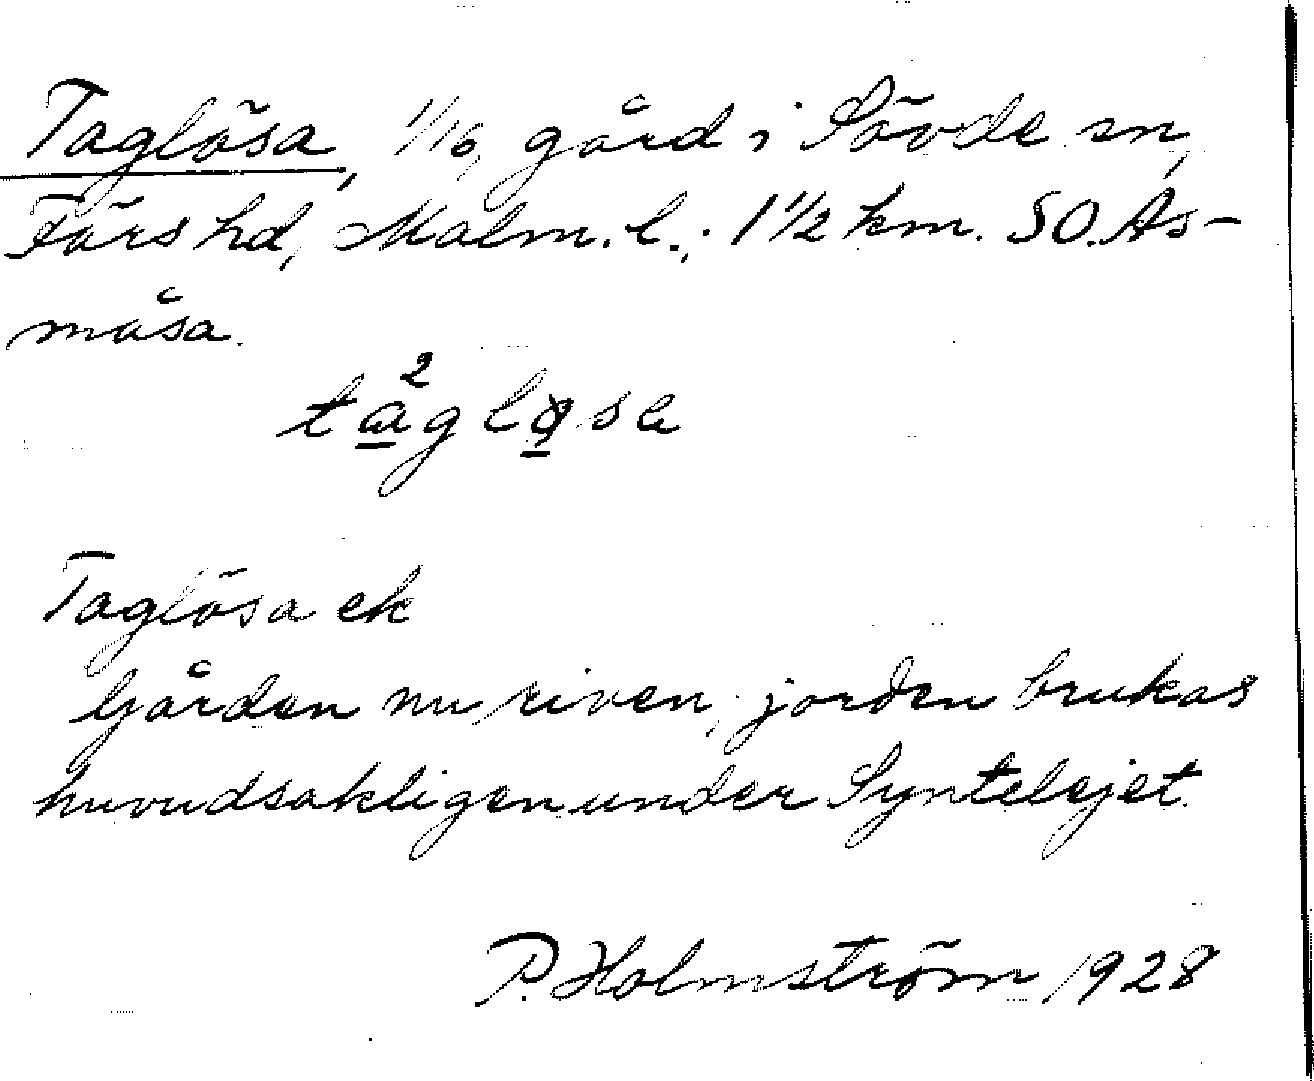 Taglösa, 1/16, gård i Sövde sn,
Färs hd, Malm. l.; 1 1/2 km. SO. Ås-
måsa.
ta²gløsa
Taglösa ek
Gården nu riven, jorden brukas
huvudsakligen under Syntelejet.
P. Holmström 1928